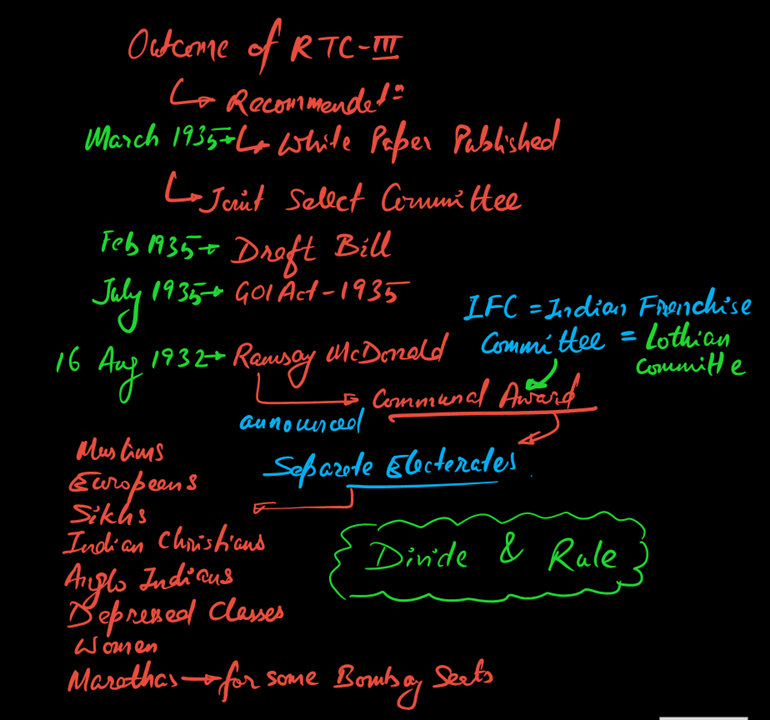 Outcome of RTC-III
Recommendatn
March 1935 → White Paper Published
Joint Select Committee
Feb 1935 → Draft Bill
July 1935 → GOI Act-1935
IFC = Indian Frenchise
Committee = Lothian
Committe
16 Aug 1932 → Ramsay McDonald
announced → Communal Award
Separate Electerates
Muslims
Europeans
Sikhs
Indian Christians
Anglo Indians
Depressed Classes
Women
Marathas → for some Bombay Seats
Divide & Rule